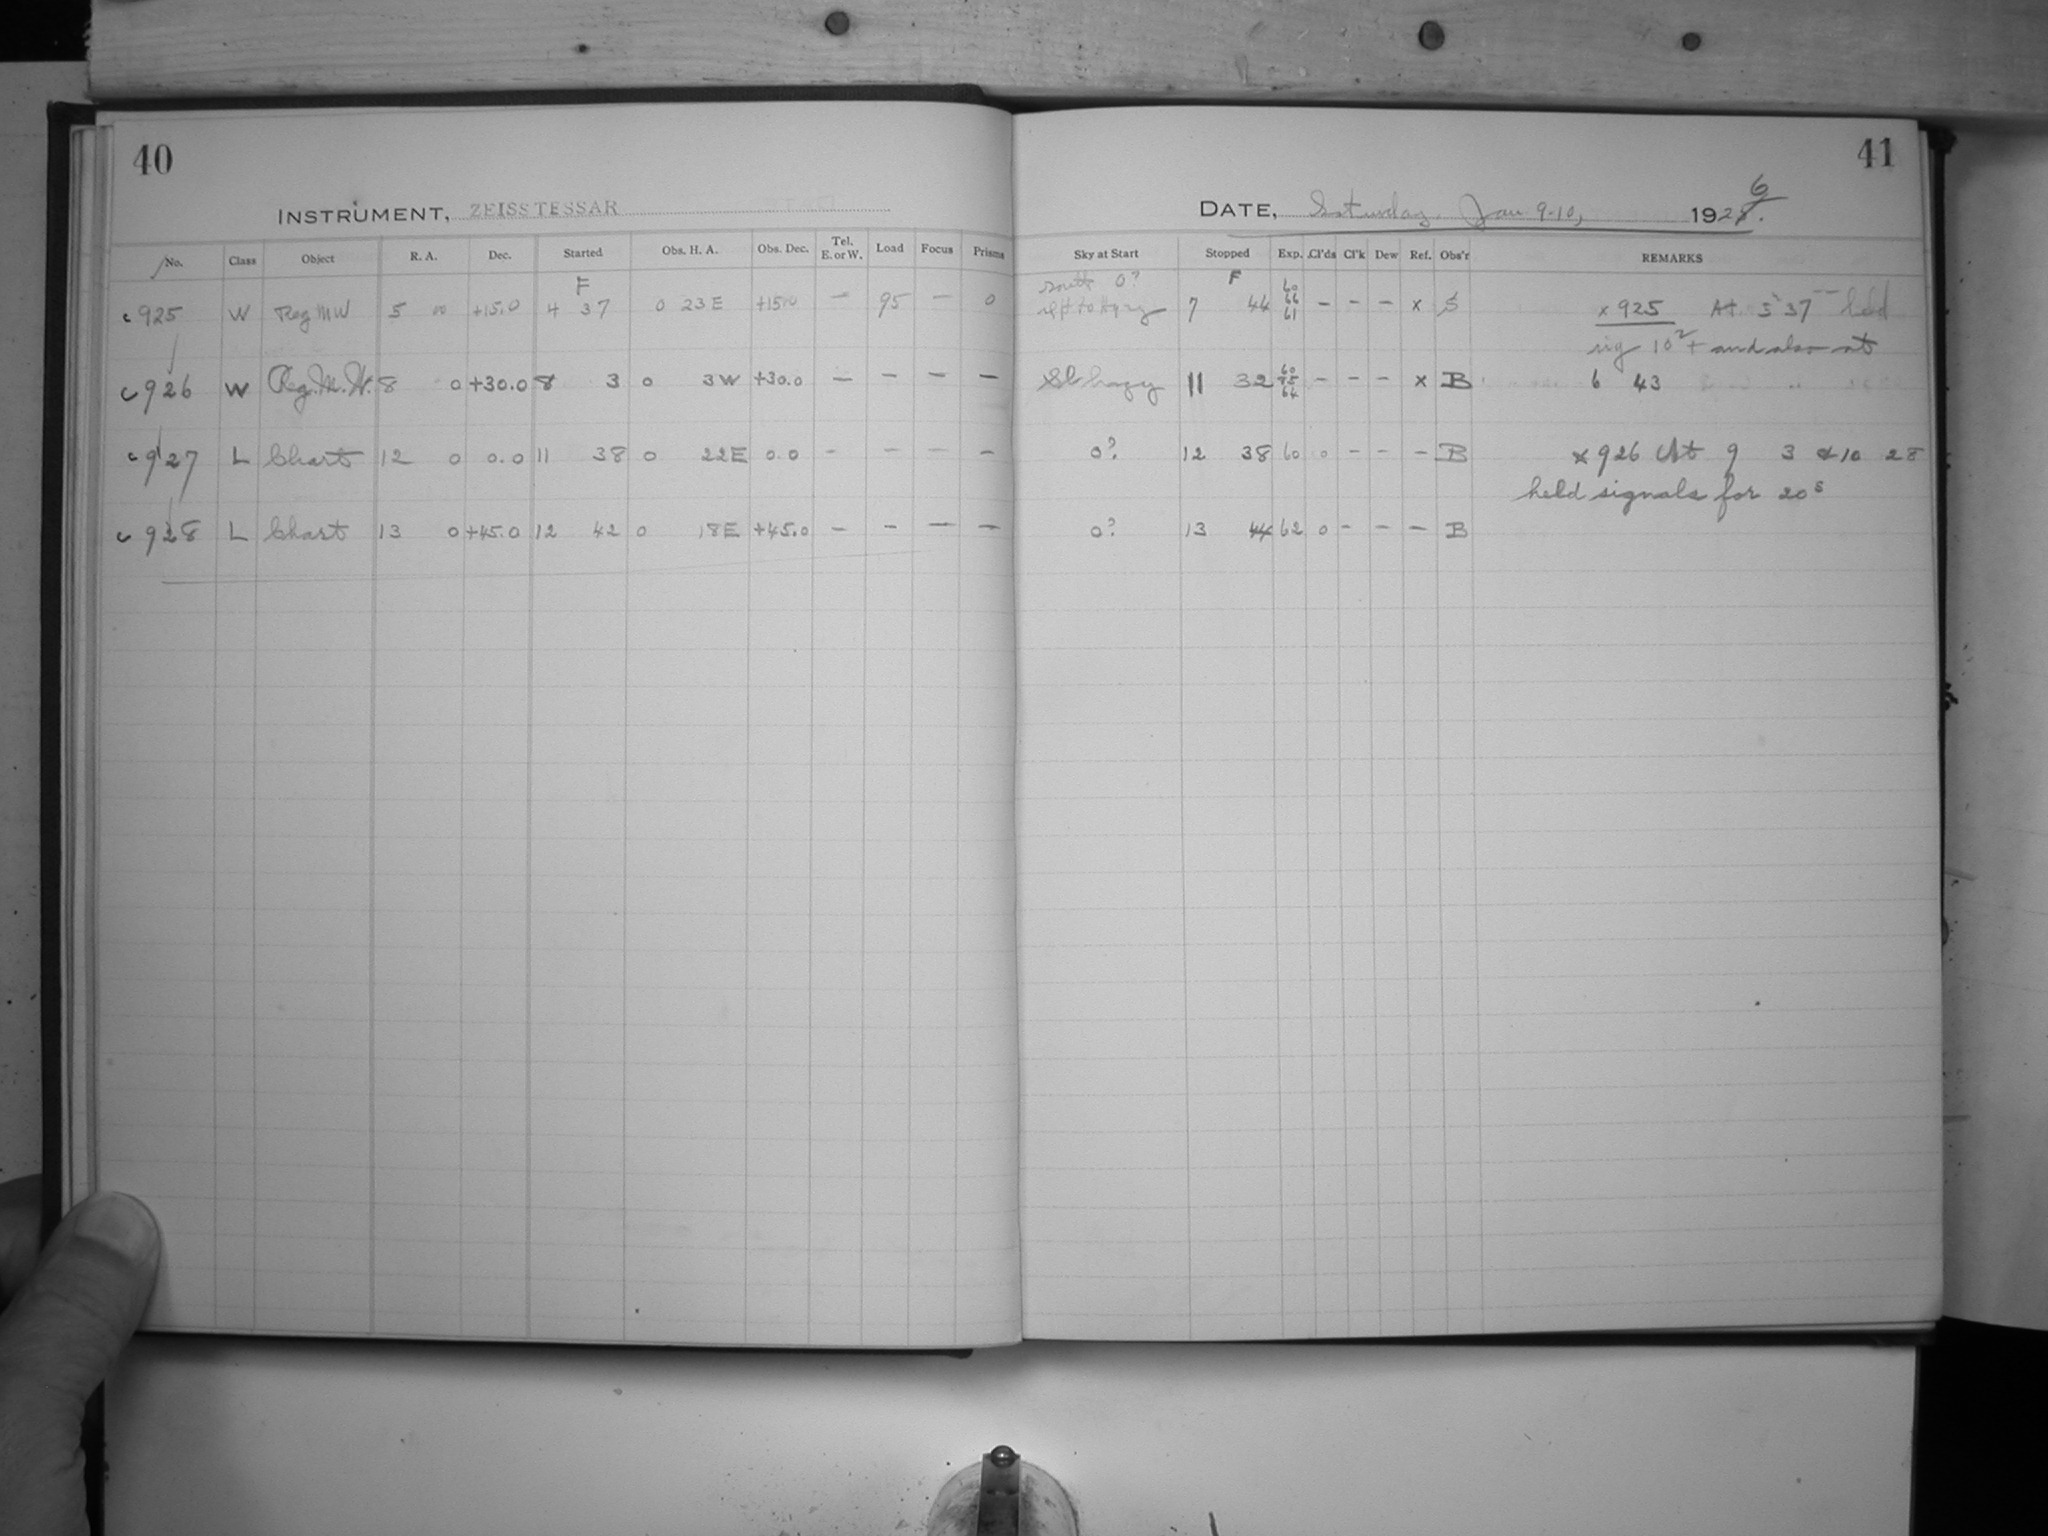 40
INSTRUMENT, ZEISS TESSAR
No. Class Object R. A. Dec. Started Obs. H. A. Obs. Dec. Tel. E. or W. Load Focus Prisms
F
925 W Reg MW 5 00 +15.0 4 37 0 23 E +15.0 — 95 — 0
926 W Reg. M. W. 8 0 +30.0 8 3 0 3 W +30.0 — — — —
927 L Chart 12 0 0.0 11 38 0 22 E 0.0 - - - -
928 L Chart 13 0 +45.0 12 42 0 18 E +45.0 — - — —
41
DATE, Saturday, Jan 9-10, 1926.
Sky at Start Stopped Exp. Cl'ds Cl'k Dew Ref. Obs'r REMARKS
south 0? F 60
7 44 66 — - — x S x 925 At 5 37 held
61
sig 10 + and also at
Sl hazy 11 32 60 75 64 - - - x B 6 43
0? 12 38 60 0 - - - B x 926 At 9 3 & 10 28
held signals for 20s
0? 13 44 62 0 - - - B